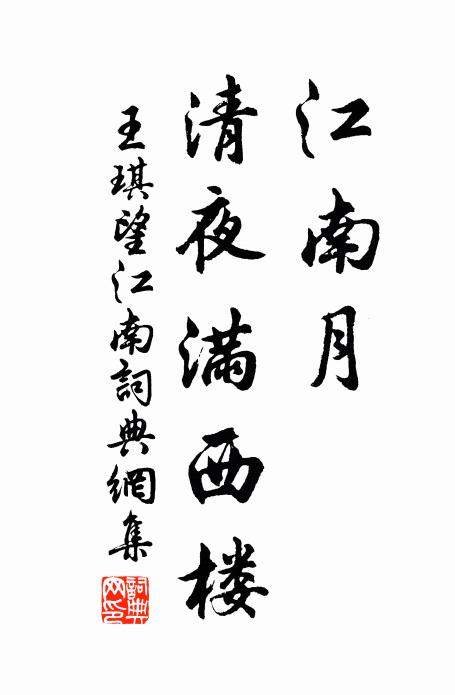 江南月
清夜满西楼
王琪望江南詞典網集
詞典网印